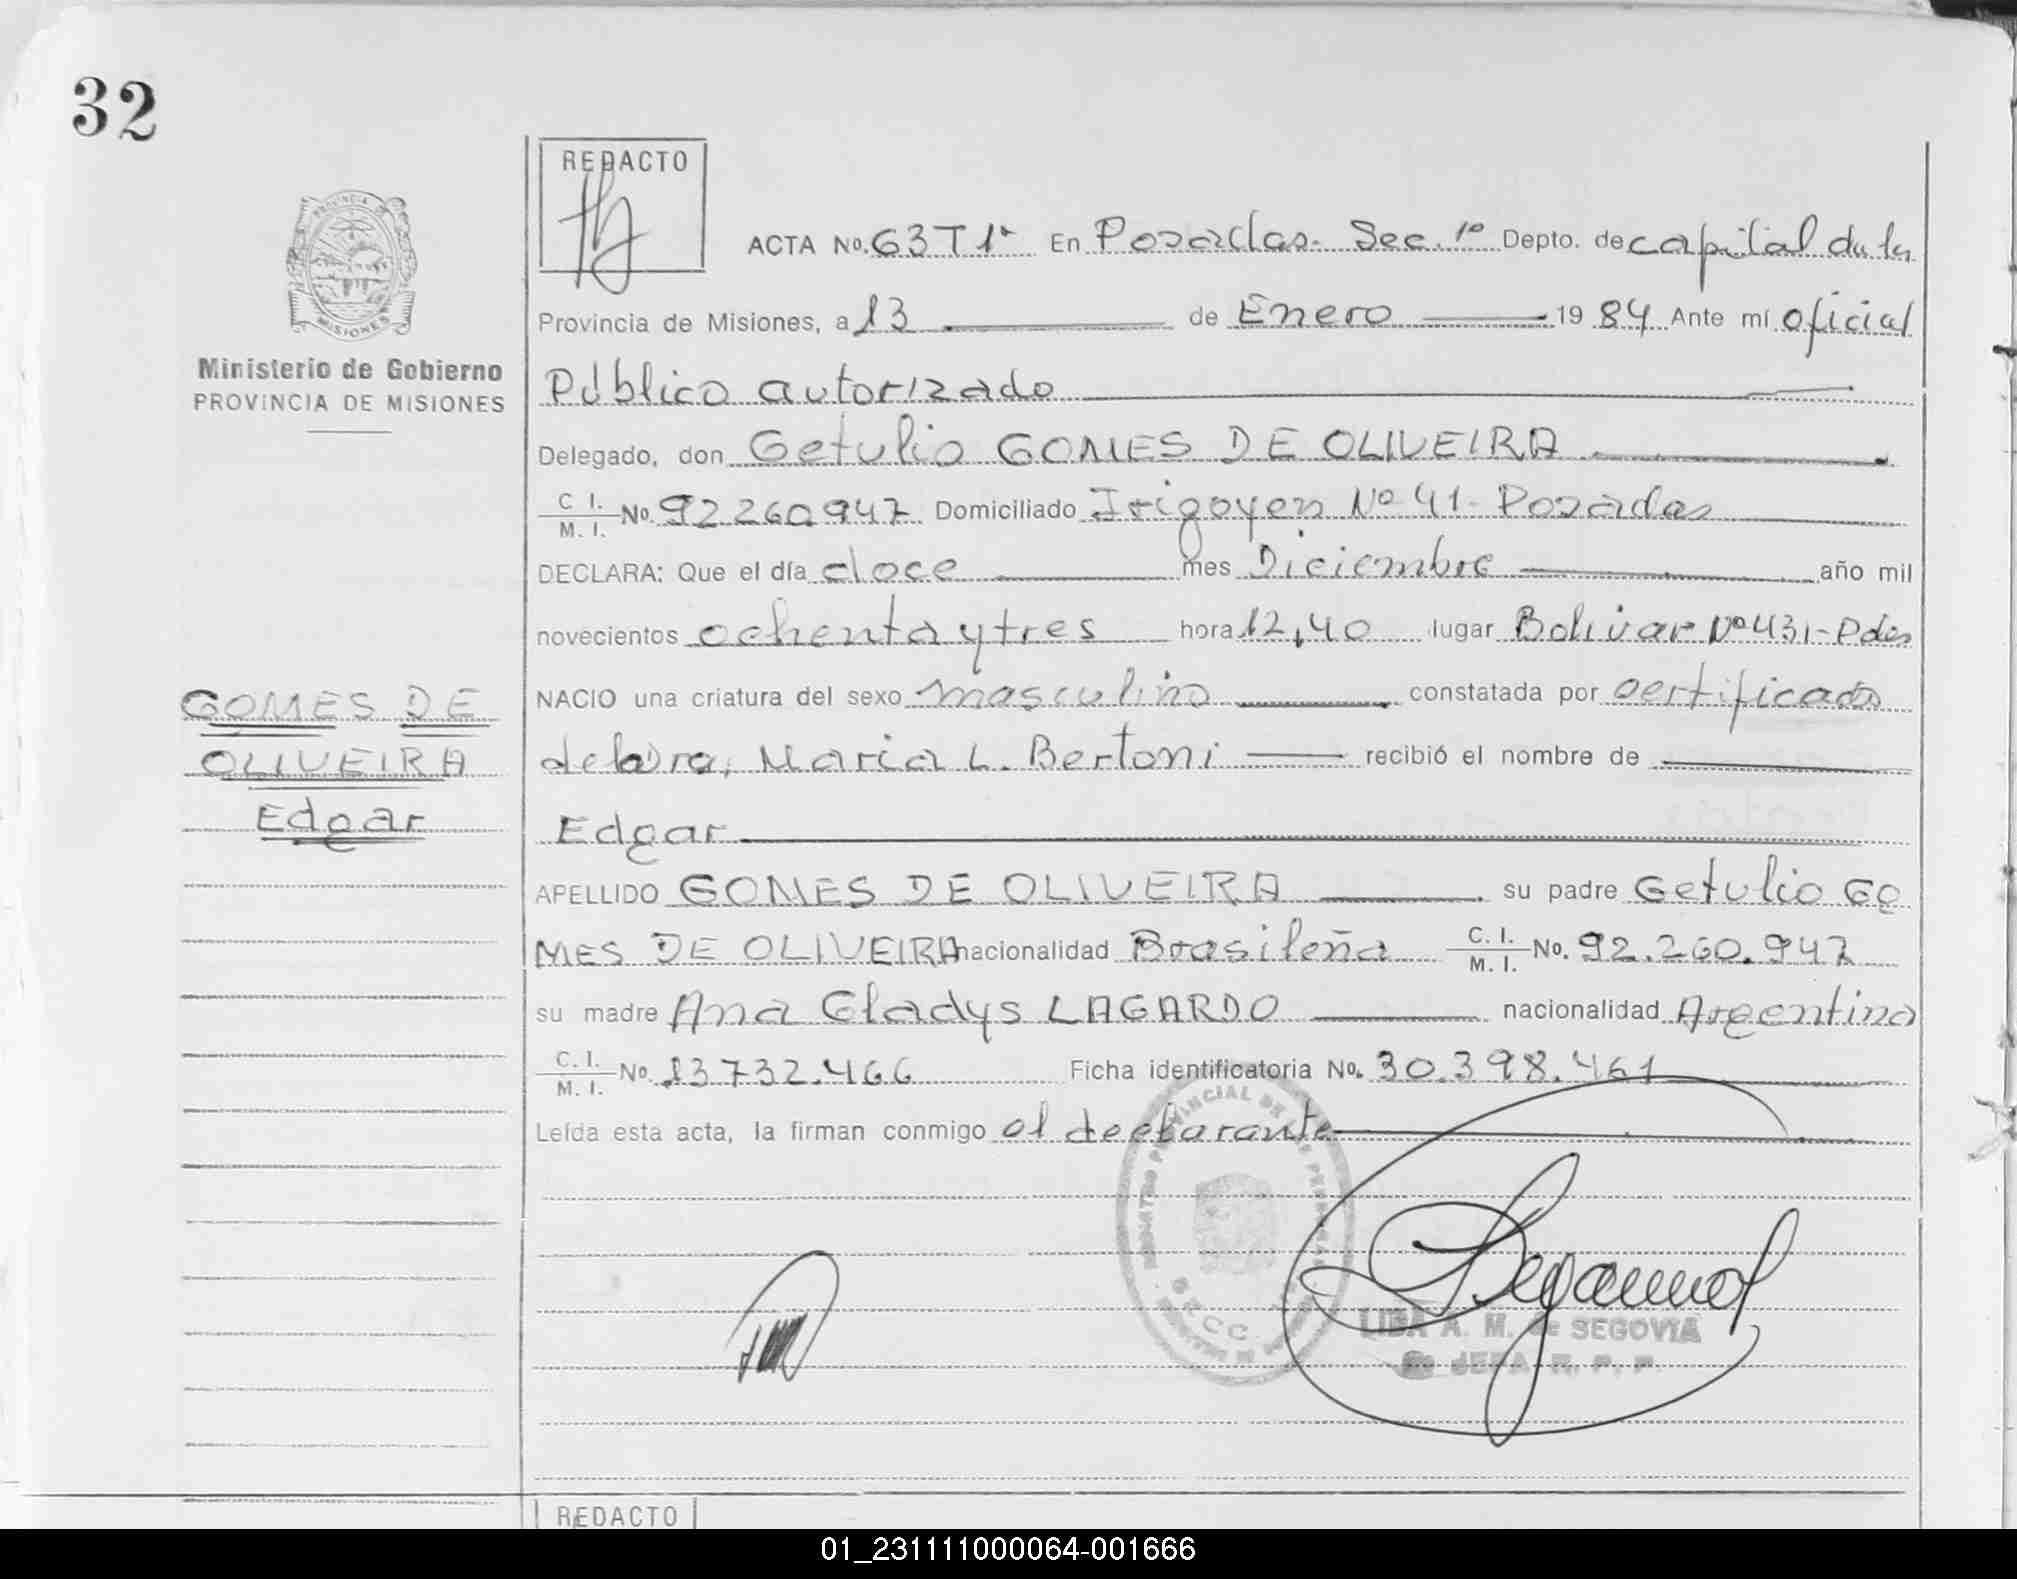 32
REDACTO
ACTA No. 63T1º En Posadas. Sec. 1º Depto. de capital de la
Provincia de Misiones, a 13 de Enero 1984 Ante mí oficial
Ministerio de Gobierno
PROVINCIA DE MISIONES
Público autorizado
Delegado, don Getulio GOMES DE OLIVEIRA
C. I. M. I. No. 92260947 Domiciliado Irigoyen Nº 41- Posadas
DECLARA: Que el día doce mes Diciembre año mil
novecientos ochenta y tres hora 12,40 lugar Bolivar Nº 431-Pdas
NACIO una criatura del sexo masculino constatada por certificado
de la Dra, Maria L. Bertoni recibió el nombre de
Edgar
GOMES DE
OLIVEIRA
Edgar
APELLIDO GOMES DE OLIVEIRA su padre Getulio GO
MES DE OLIVEIRA nacionalidad Brasileña C. I. M. I. No. 92.260.947
su madre Ana Gladys LAGARDO nacionalidad Argentina
C. I. M. I. No. 13732.466 Ficha identificatoria No. 30.398.461
Leída esta acta, la firman conmigo el declarante
LIBA A. M. de SEGOVIA
JEFA R. P. P.
REDACTO
01_231111000064-001666